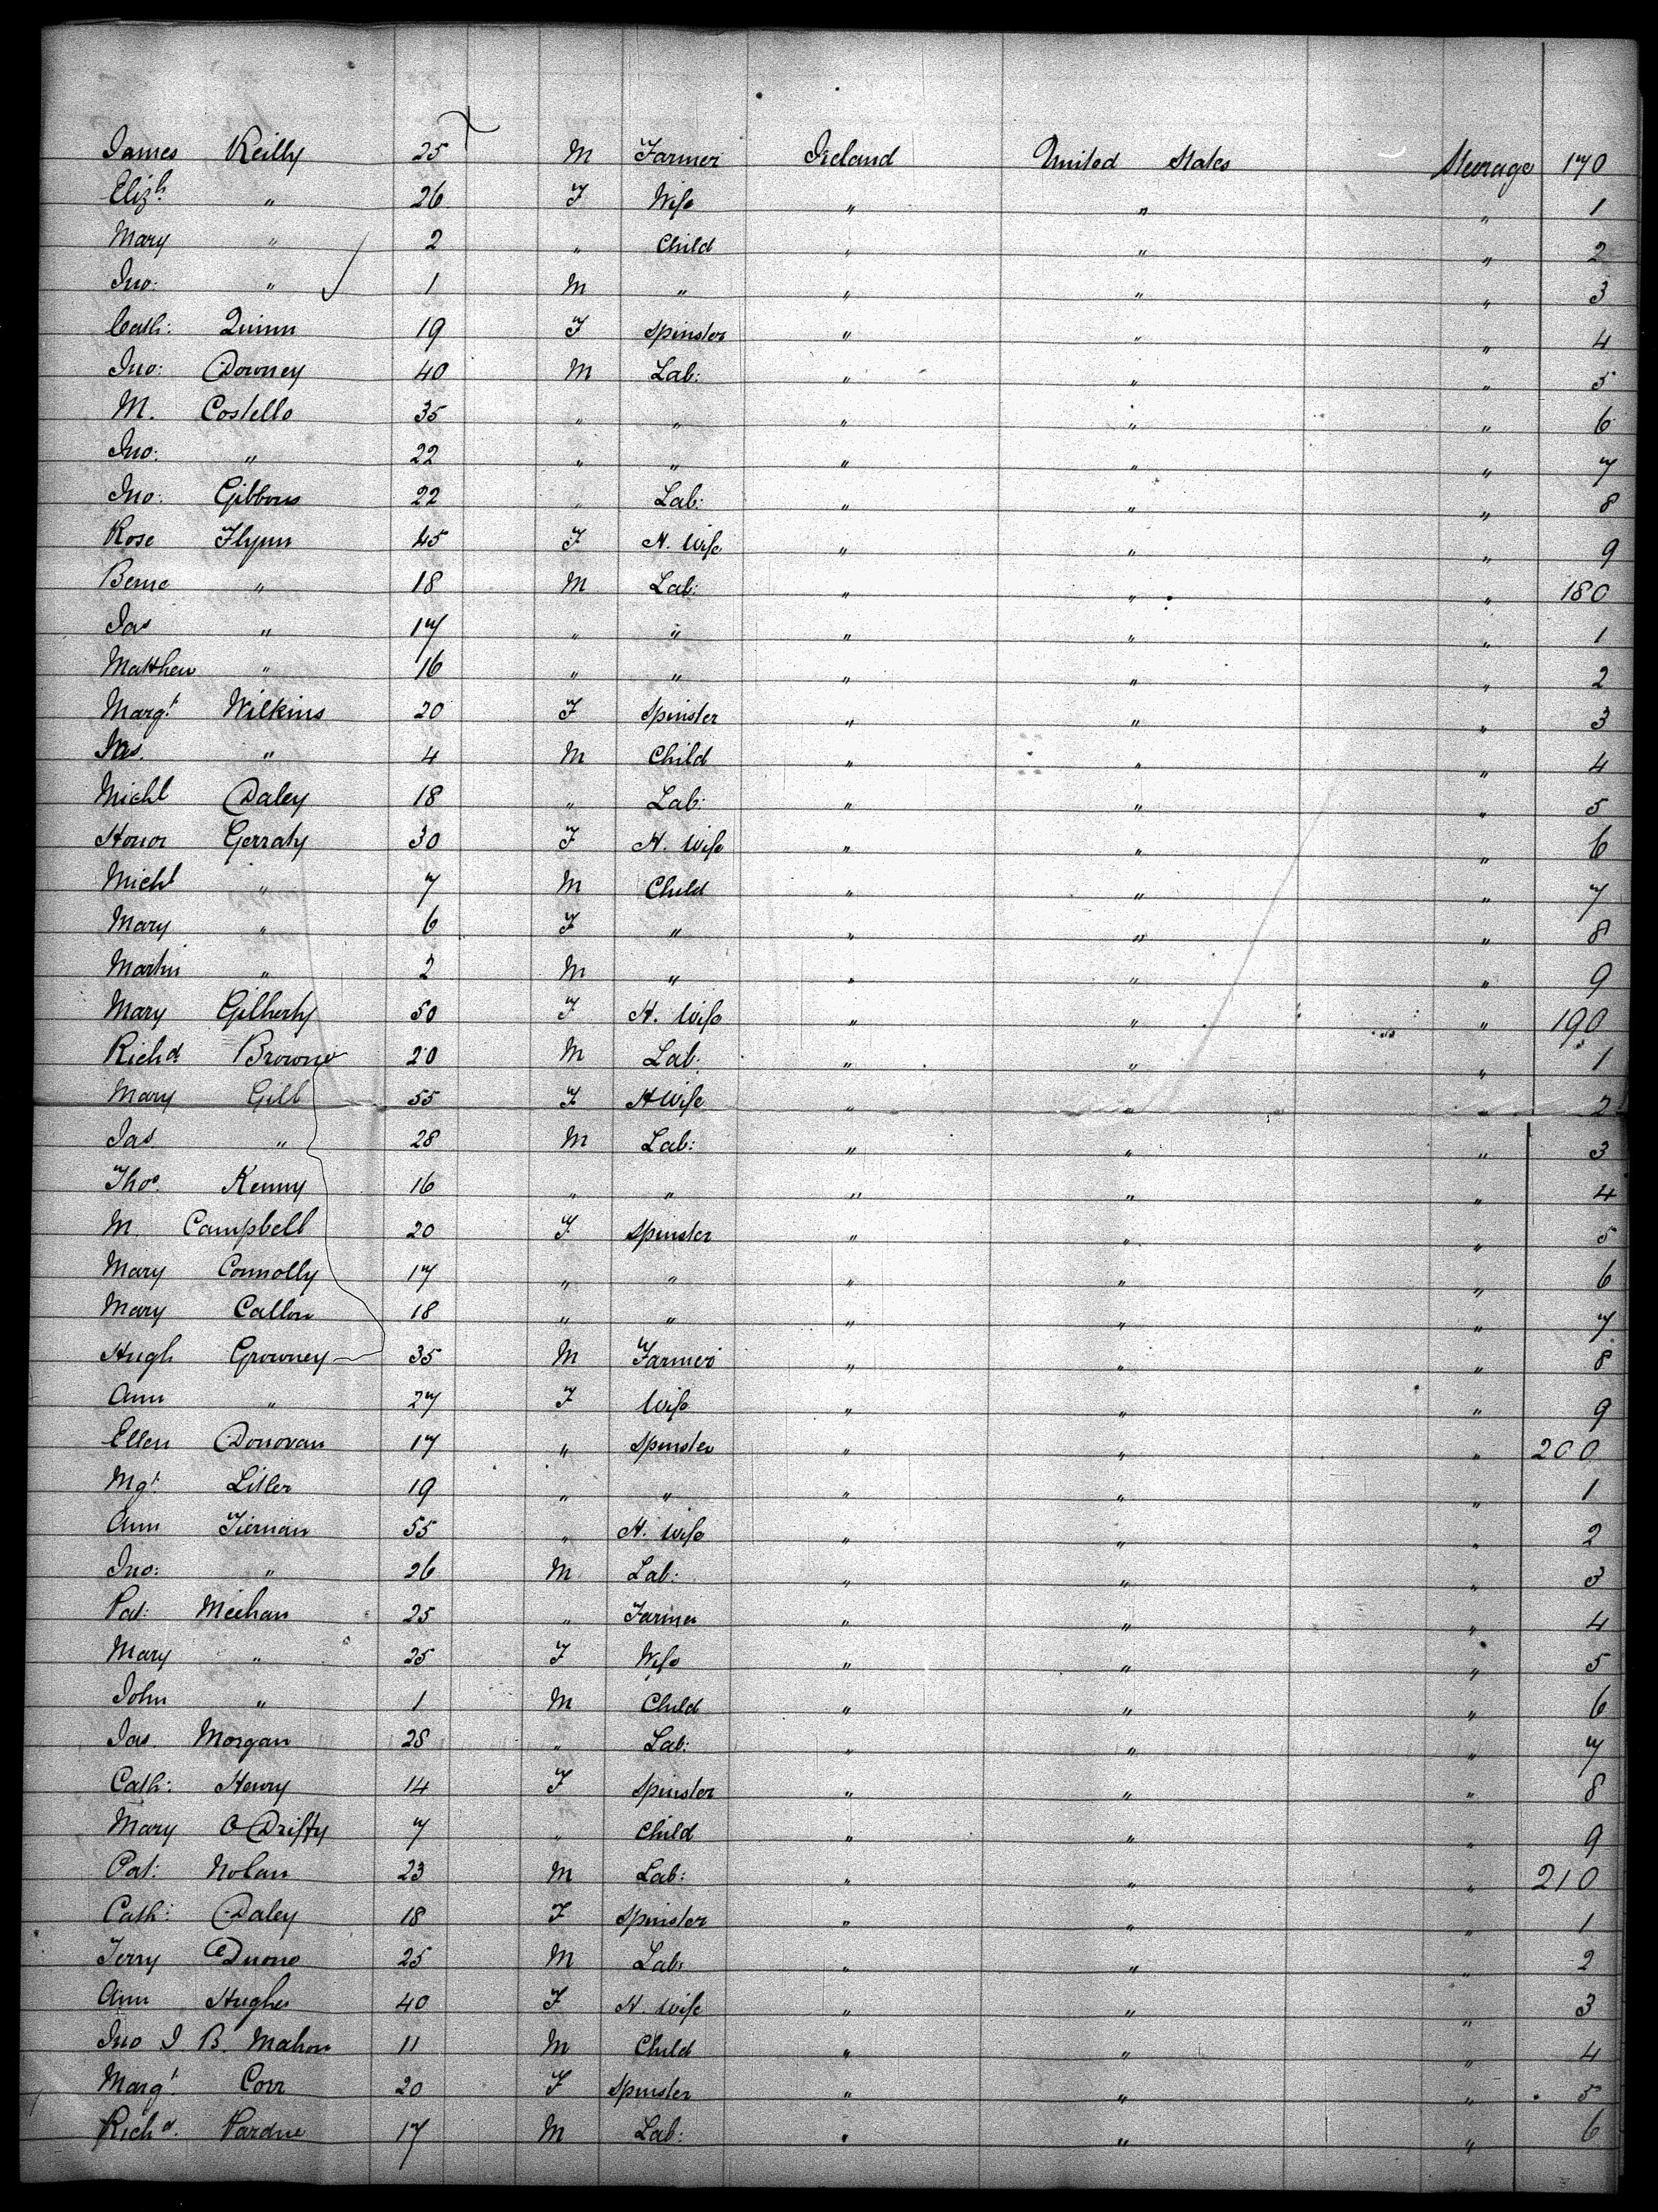 James Reilly 25 M Farmer Ireland United States Steerage 170
Eliz.h " 26 F Wife " " " 1
Mary " 2 " Child " " " 2
Jno: " 1 M " " " " 3
Cath: Quinn 19 F Spinster " " " 4
Jno: Downey 40 M Lab: " " " 5
M. Costello 35 " " " " " 6
Jno: " 22 " " " " " 7
Jno: Gibbons 22 " Lab: " " " 8
Rose Flynn 45 F H. Wife " " " 9
Berne " 18 M Lab: " " " 180
Jas " 17 " " " " " 1
Matthew " 16 " " " " " 2
Marg.t Wilkins 20 F Spinster " " " 3
Jas. " 4 M Child " " " 4
Michl Daley 18 " Lab: " " " 5
Honor Gerraty 30 F H. Wife " " " 6
Michl " 7 M Child " " " 7
Mary " 6 F " " " " 8
Martin " 2 M " " " " 9
Mary Gilherty 50 F H. Wife " " " 190
Richd Browne 20 M Lab: " " " 1
Mary Gill 55 F H Wife " " " 2
Jas " 28 M Lab: " " " 3
Thos. Kenny 16 " " " " " 4
M. Campbell 20 F Spinster " " " 5
Mary Connolly 17 " " " " " 6
Mary Callon 18 " " " " " 7
Hugh Growney 35 M Farmer " " " 8
Ann " 27 F Wife " " " 9
Ellen Donovan 17 " Spinster " " " 200
Mgt: Litler 19 " " " " " 1
Ann Tiernan 55 " H. Wife " " " 2
Jno: " 26 M Lab: " " " 3
Pat: Meehan 25 " Farmer " " " 4
Mary " 25 F Wife " " " 5
John " 1 M Child " " " 6
Jas. Morgan 28 " Lab: " " " 7
Cath: Henry 14 F Spinster " " " 8
Mary O Drifty 7 " Child " " " 9
Pat: Nolan 23 M Lab: " " " 210
Cath: Daley 18 F Spinster " " " 1
Terry Duone 25 M Lab: " " " 2
Ann Hughes 40 F H. Wife " " " 3
Jno J. B. Mahon 11 M Child " " " 4
Marg.t Corr 20 F Spinster " " " 5
Richd. Pardue 17 M Lab: " " " 6